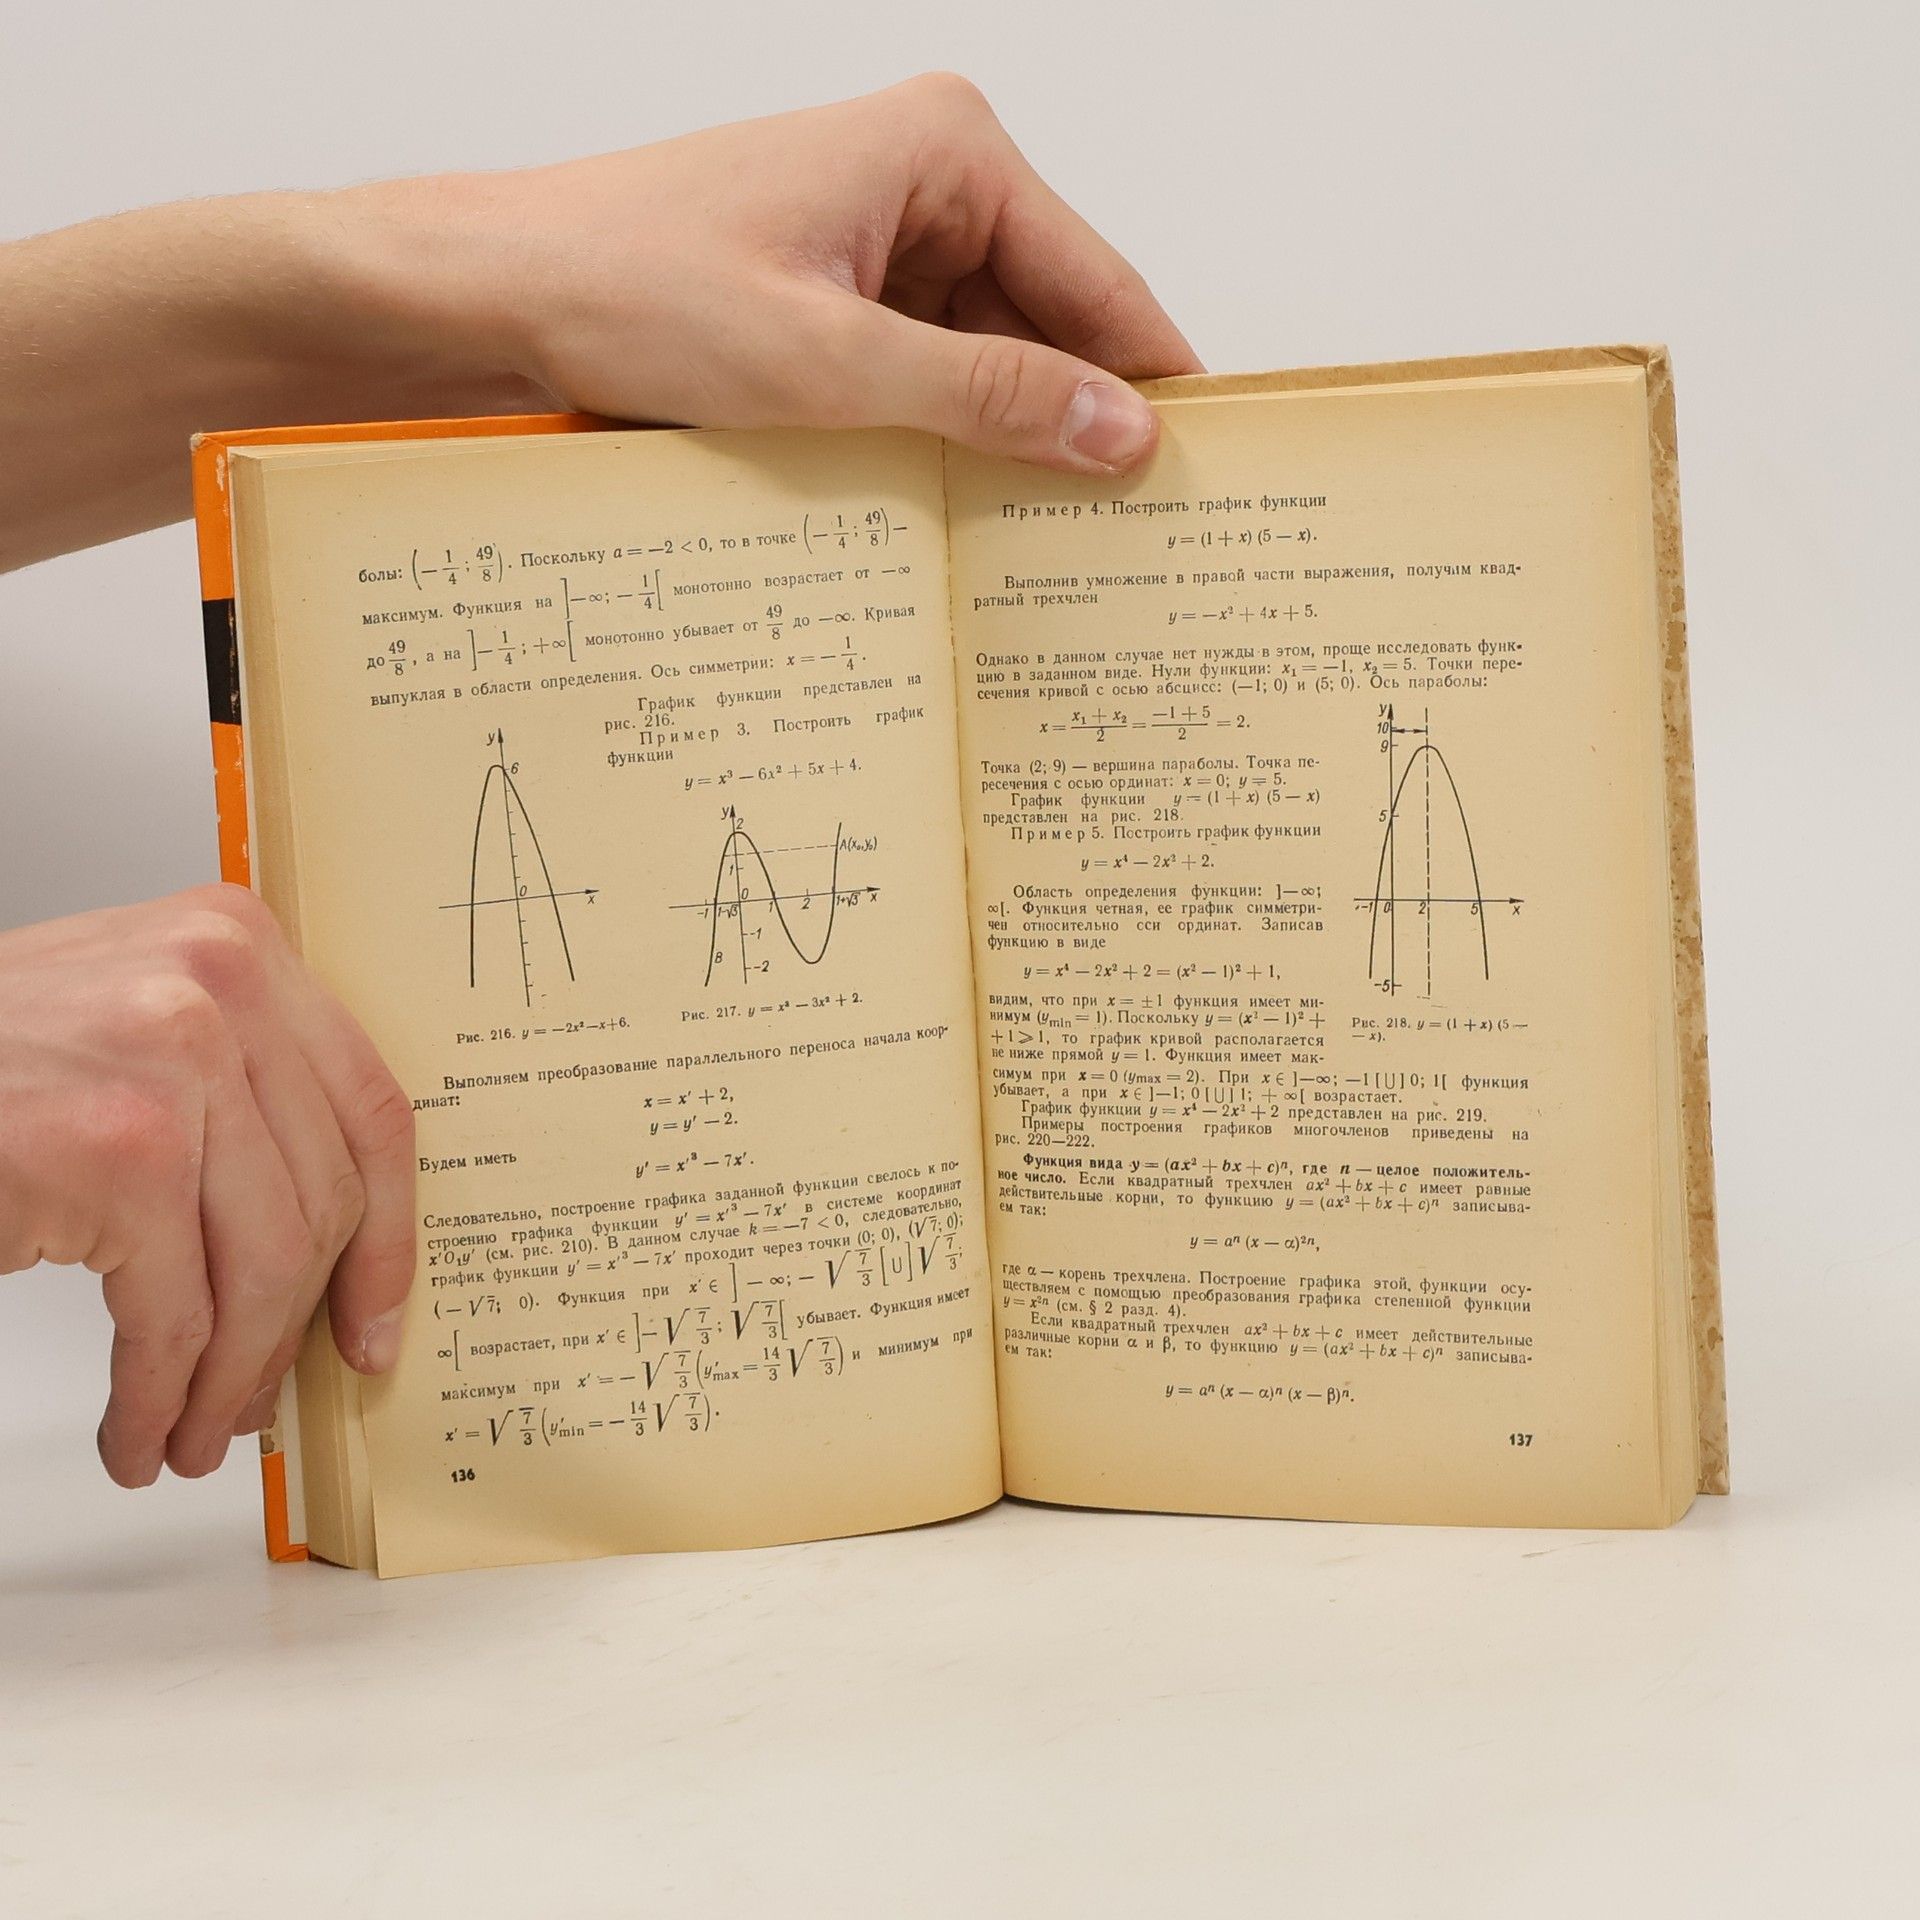 болы: (−1/4; 49/8). Поскольку a = −2 < 0, то в точке (−1/4; 49/8) —
максимум. Функция на ]−∞; −1/4[ монотонно возрастает от −∞
до 49/8, а на ]−1/4; +∞[ монотонно убывает от 49/8 до −∞. Кривая
выпуклая в области определения. Ось симметрии: x = −1/4.
График функции представлен на
рис. 216.
Пример 3. Построить график
функции
y = x³ − 6x² + 5x + 4.
y
6
0
x
Рис. 216. y = −2x²−x+6.
y
2
A(x₀,y₀)
1
0
−1
1−√3
1
2
1+√3
x
−1
B
−2
Рис. 217. y = x³ − 3x² + 2.
Выполняем преобразование параллельного переноса начала коор-
динат:
x = x′ + 2,
y = y′ − 2.
Будем иметь
y′ = x′³ − 7x′.
Следовательно, построение графика заданной функции свелось к по-
строению графика функции y′ = x′³ − 7x′ в системе координат
x′O₁y′ (см. рис. 210). В данном случае k = −7 < 0, следовательно,
график функции y′ = x′³ − 7x′ проходит через точки (0; 0), (√7; 0);
(−√7; 0). Функция при x′ ∈ ]−∞; −√7/3[∪]√7/3;
∞[ возрастает, при x′ ∈ ]−√7/3; √7/3[ убывает. Функция имеет
максимум при x′ = −√7/3 (y′max = 14/3 √7/3) и минимум при
x′ = √7/3 (y′min = −14/3 √7/3).
136
Пример 4. Построить график функции
y = (1 + x) (5 − x).
Выполнив умножение в правой части выражения, получим квад-
ратный трехчлен
y = −x² + 4x + 5.
Однако в данном случае нет нужды в этом, проще исследовать функ-
цию в заданном виде. Нули функции: x₁ = −1, x₂ = 5. Точки пере-
сечения кривой с осью абсцисс: (−1; 0) и (5; 0). Ось параболы:
x = (x₁ + x₂)/2 = (−1 + 5)/2 = 2.
Точка (2; 9) — вершина параболы. Точка пе-
ресечения с осью ординат: x = 0; y = 5.
График функции y = (1 + x) (5 − x)
представлен на рис. 218.
Пример 5. Построить график функции
y = x⁴ − 2x² + 2.
Область определения функции: ]−∞;
∞[. Функция четная, ее график симметри-
чен относительно оси ординат. Записав
функцию в виде
y = x⁴ − 2x² + 2 = (x² − 1)² + 1,
видим, что при x = ±1 функция имеет ми-
нимум (ymin = 1). Поскольку y = (x² − 1)² +
+ 1 ⩾ 1, то график кривой располагается
не ниже прямой y = 1. Функция имеет мак-
симум при x = 0 (ymax = 2). При x ∈ ]−∞; −1[∪]0; 1[ функция
убывает, а при x ∈ ]−1; 0[∪]1; +∞[ возрастает.
y
10
9
5
−1
0
2
5
x
−5
Рис. 218. y = (1 + x) (5 —
— x).
График функции y = x⁴ − 2x² + 2 представлен на рис. 219.
Примеры построения графиков многочленов приведены на
рис. 220—222.
Функция вида y = (ax² + bx + c)ⁿ, где n — целое положитель-
ное число. Если квадратный трехчлен ax² + bx + c имеет равные
действительные корни, то функцию y = (ax² + bx + c)ⁿ записыва-
ем так:
y = aⁿ (x − α)²ⁿ,
где α — корень трехчлена. Построение графика этой, функции осу-
ществляем с помощью преобразования графика степенной функции
y = x²ⁿ (см. § 2 разд. 4).
Если квадратный трехчлен ax² + bx + c имеет действительные
различные корни α и β, то функцию y = (ax² + bx + c)ⁿ записыва-
ем так:
y = aⁿ (x − α)ⁿ (x − β)ⁿ.
137